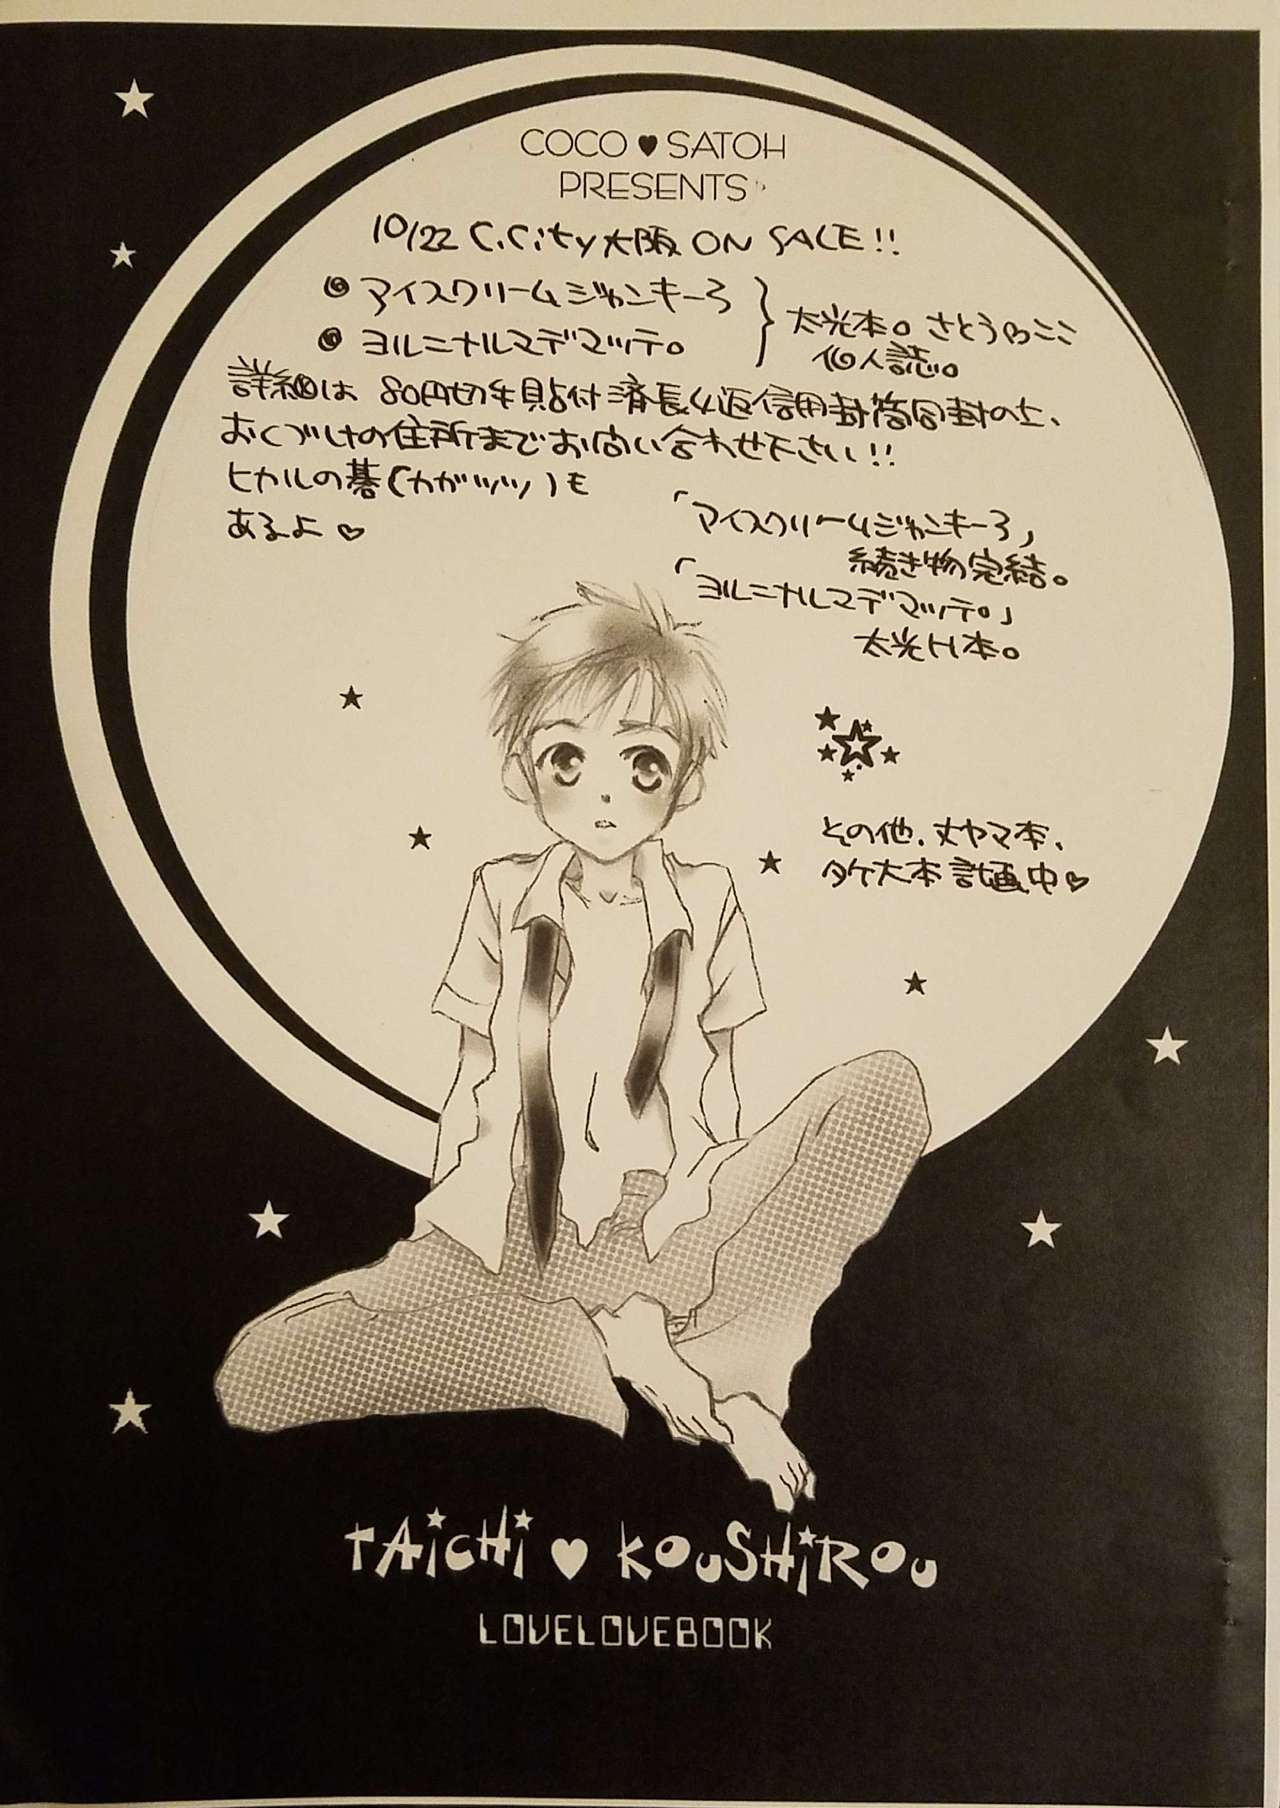 COCO♥SATOH
PRESENTS
10/22 C.City大阪 ON SALE!!
◎アイスクリームジャンキー3
◎ヨルニナルマデマッテ。
太光本。さとうココ
個人誌。
詳細は80円切手貼付済長4返信用封筒同封の上、
おくづけの住所までお問い合わせ下さい!!
ヒカルの碁(カガツツ)も
あるよ♡
「アイスクリームジャンキー3」
続き物完結。
「ヨルニナルマデマッテ。」
太光H本。
その他、丈ヤマ本、
タケ大本計画中♡
TAiCHi ♥ KOUSHiROU
LOVELOVEBOOK